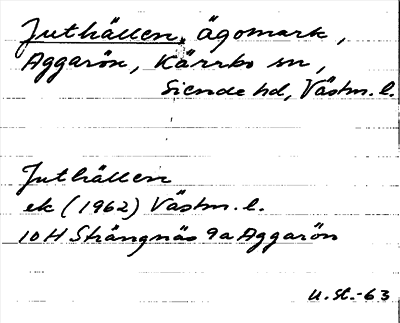 Juthällen, ägomark,
Aggarön, Kärrbo sn,
Siende hd, Västm. l.
Juthällen
ek (1962) Västm. l.
10H Strängnäs 9a Aggarön
U. St. -63